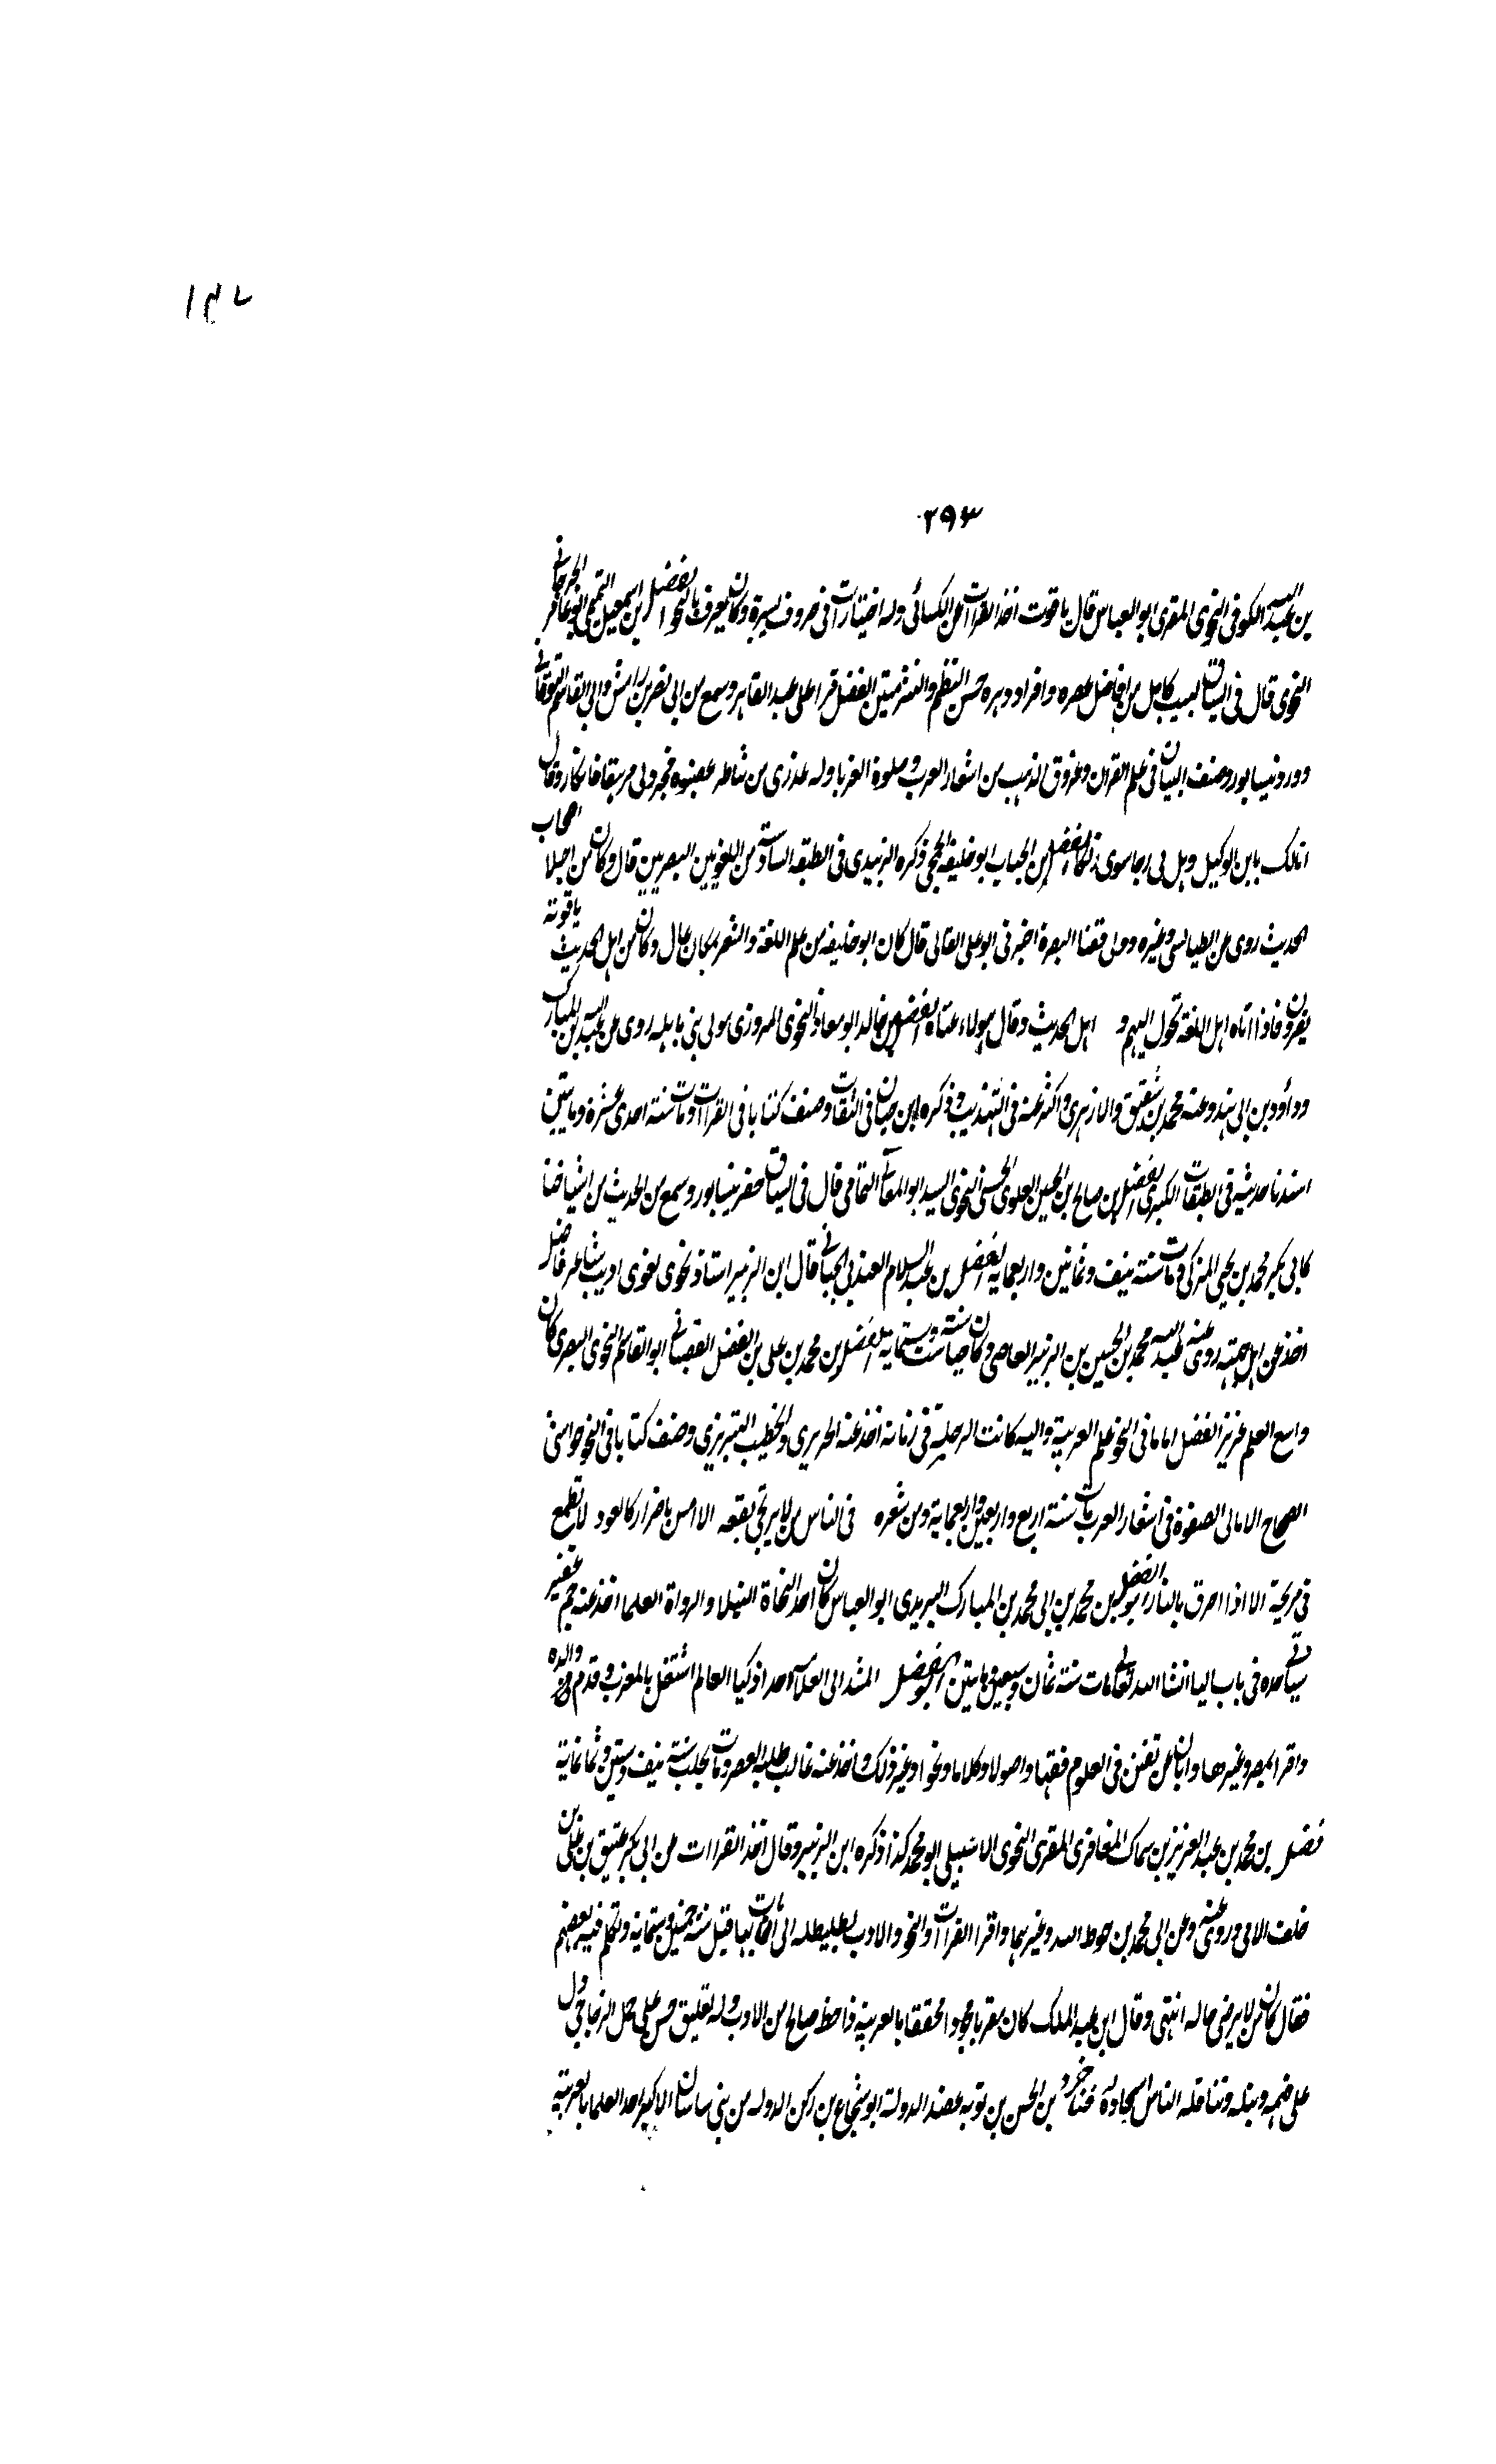 ١٤٧
٢٩٣
بن عبد الله الكوفى النحوى المقرى ابو العباس قال ياقوت اخذ القراات عن الكسائى وله اختيارات فى حروف يسيرة وكان يعرف بالنحو الفضل بن اسمعيل التميمى ابو عامر الجرجانى
النحوى قال فى السياق لبيب كامل من افاضل عصره وافراد دهره حسن النظم والنثر متين الفضل قرا على عبد القاهر وسمع من ابى نصر بن رامش وابى القاسم النوقانى
وورد نيسابور وصنف البيان فى علم القران وعروق الذهب من اشعار العرب وسلوة الغربا وله عذرى من شاطر
اتالك يابن الوكيل وهل لى رجا سوى ذلكا الفضل بن الحباب ابو خليفة الجمحى ذكره الزبيدى فى الطبقه السادسة من اللغويين البصريين قال وكان من اجلا اصحاب
الحديث روى عن الطيالسى وغيره وولى قضا البصرة اخبرنى ابو على القالى قال كان ابو خليفه من علم اللغة والشعر بمكان عال وكان من اهل الحديث ياتونه
يقرؤن فاذا اتاه اهل اللغة تحول اليهم و اهل الحديث وقال هولاء عثاة الفضل بن خالد ابو معاذ النحوى المروزى مولى بنى باهله روى عن عبد الله بن المبارك
وداؤد بن ابى هند وعنه محمد بن شقيق والازهرى واكثر عنه فى التهذيب وذكره ابن حبان فى الثقات وصنف كتابا فى القرات ومات سنة احدى عشرة وماتين
اسندنا حديثه فى الطبقات الكبرى الفضل بن صالح بن الحسين العلوى الحسنى النحوى السيد ابو المعالى اليمامى قال فى السياق حضر نيسابور وسمع من الحديث من اشياخنا
كابى بكر محمد بن يحيى المزكى ومات سنة نيف وثمانين واربعماية الفضل بن عبد السلام العبدى الجيانى قال ابن الزبير استاذ نحوى لغوى اديب شاعر فاضل
اخذ عن اهل جهته روى عنه عبد الله محمد بن الحسين بن الزبير العاصى وكان حيا سنة ست وستماية الفضل بن محمد بن على بن الفضل القصبانى ابو القاسم النحوى البصرى كان
واسع العلم غزير الفضل اماما فى النحو علم العربية واليه كانت الرحلة فى زمانه اخذ عنه الحريرى والخطيب التبريزى وصنف كتابا فى النحو حواشى
الصحاح الامالى الصفوة فى اشعار العرب مات سنة اربع واربعين واربعماية ومن شعره فى الناس من لا يرتجى نفعه الا اذا مس باضرار كالعود لا تطمع
فى ريحه الا اذا احرق بالنار الفضل بن محمد بن ابى محمد بن المبارك اليزيدى ابو العباس كان احد النحاة النبلا والرواة العلما اخذ عنه جم غفير
سياتى جده فى باب اليا انشا الله تعالى مات سنة ثمان وسبعين وماتين ابو الفضل المشدالى العلامه احد اذكيا العالم اشتغل بالمغرب وقدم والده
واقرا بمصر وغيرها وابان عن تفنن فى العلوم فقها واصولا وكلاما ونحوا وغير ذلك واخذ عنه غالب طلبه العصر ومات بحلب سنة نيف وستين وثمانماية
فضل بن محمد بن عبد العزيز بن سماك المعافرى المقرى النحوى الاشبيلى ابو محمد كذا ذكره ابن الزبير وقال اخذ القراات عن ابى بكر عتيق بن على بن
خلف الامى وروى عنه وعن ابى محمد بن حوط الله وغيرهما واقرا القراات والنحو والادب بطليطله الى ان مات بها قبل سنة خمسين وستماية وتكلم فيه بعضهم
فقال كان من لا يرضى حاله انتهى وقال ابن عبد الملك كان مقريا مجودا محققا بالعربية ذا حظ صالح من الادب وله تعليق حسن على جمل الزجاجى دل
على فهمه ونبله وتناقله الناس استجادة له فنا خسرو بن الحسن بن بويه عضد الدولة ابو شجاع بن ركن الدوله من بنى ساسان الاكبر احد العلما بالعربية